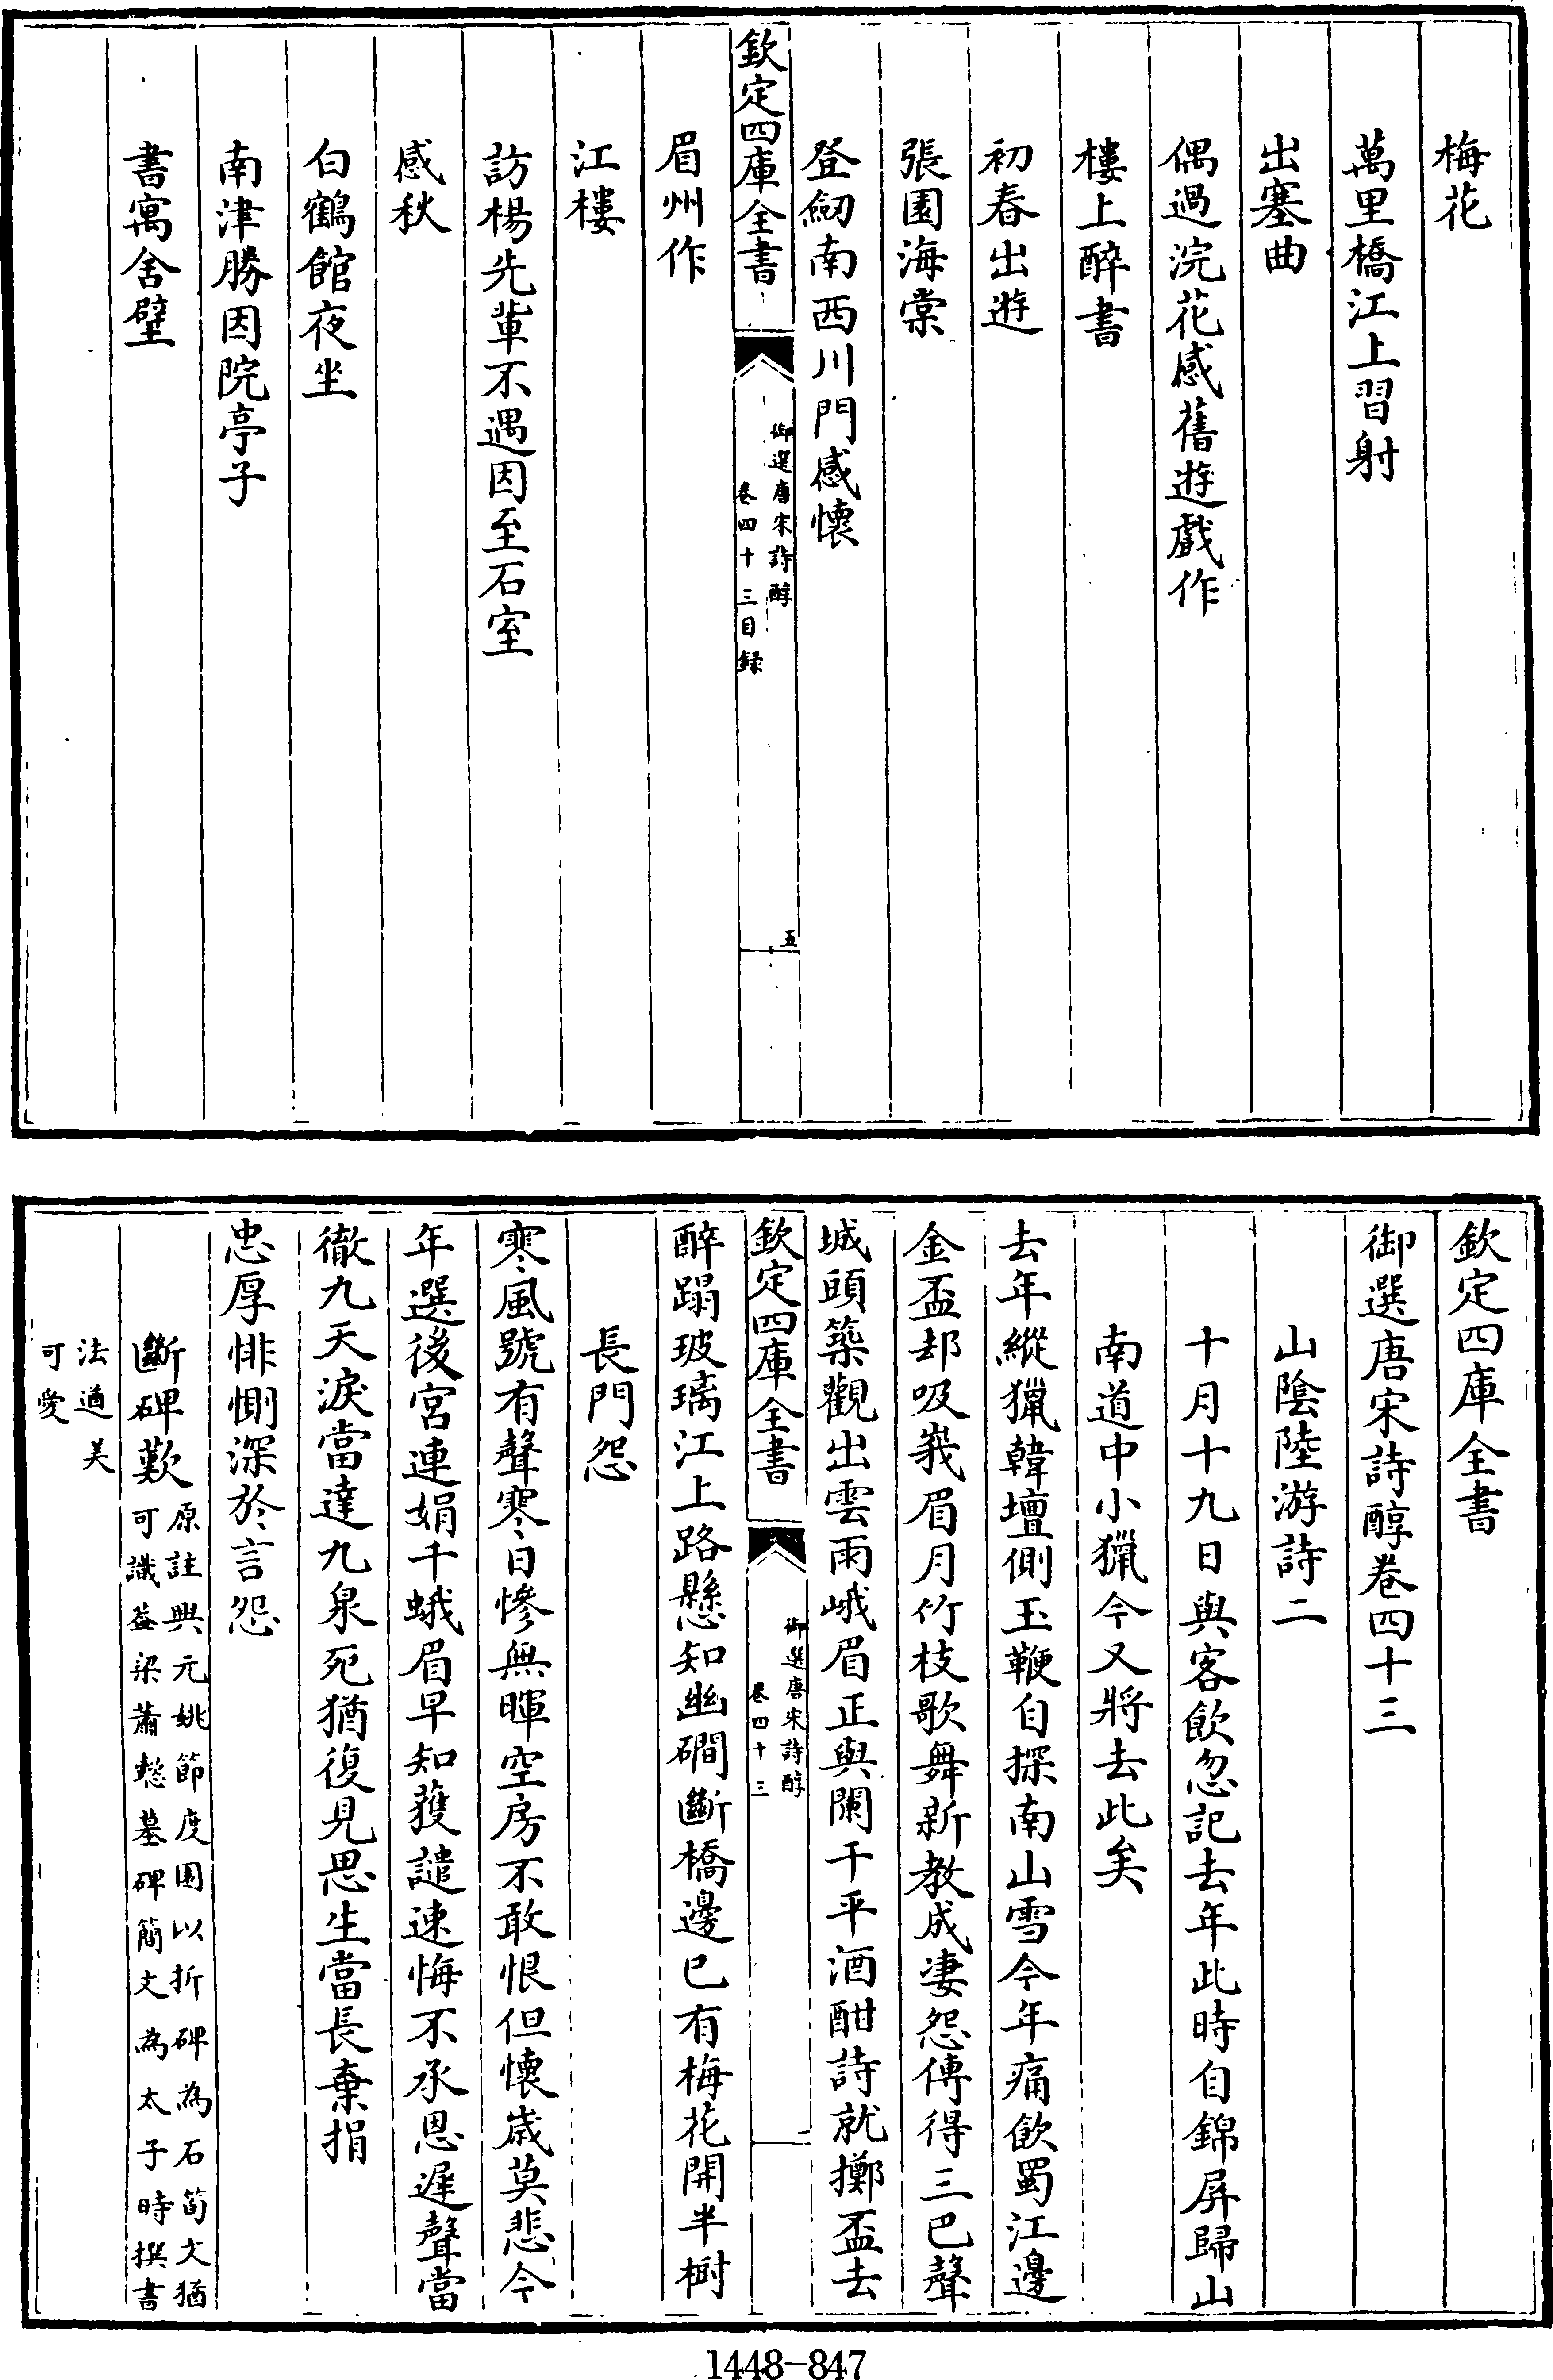 梅花
萬里橋江上習射
出塞曲
偶過浣花感舊遊戲作
樓上醉書
初春出遊
張園海棠
登劒南西川門感懷
欽定四庫全書
御選唐宋詩醇
卷四十三目録
五
眉州作
江樓
訪楊先輩不遇因至石室
感秋
白鶴館夜坐
南津勝因院亭子
書寓舍壁
欽定四庫全書
御選唐宋詩醇卷四十三
山陰陸游詩二
十月十九日與客飲忽記去年此時自錦屏歸山
南道中小獵今又將去此矣
去年縱獵韓壇側玉鞭自探南山雪今年痛飲蜀江邊
金盃却吸峩眉月竹枝歌舞新教成凄怨傳得三巴聲
城頭築觀出雲雨峨眉正與闌干平酒酣詩就擲盃去
欽定四庫全書
御選唐宋詩醇
卷四十三
一
醉蹋玻璃江上路懸知幽磵斷橋邊已有梅花開半樹
長門怨
寒風號有聲寒日慘無暉空房不敢恨但懷歲莫悲今
年選後宮連娟千蛾眉早知獲譴速悔不承恩遲聲當
徹九天淚當達九泉死猶復見思生當長棄捐
忠厚悱惻深於言怨
斷碑歎
原註興元姚節度園以折碑為石筍文猶
可識葢梁蕭懿墓碑簡文為太子時撰書
法遒美
可愛
1448-847